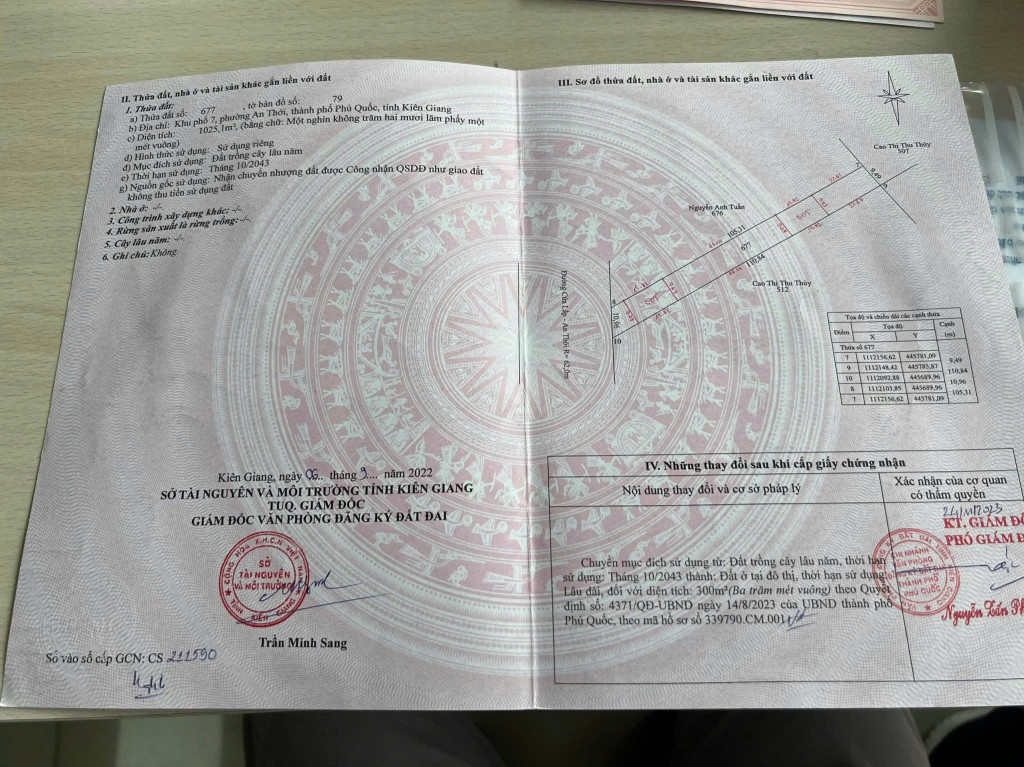 II. Thửa đất, nhà ở và tài sản khác gắn liền với đất
1. Thửa đất:
a) Thửa đất số: 677 , tờ bản đồ số: 79
b) Địa chỉ: Khu phố 7, phường An Thới, thành phố Phú Quốc, tỉnh Kiên Giang
c) Diện tích: 1025,1m², (bằng chữ: Một nghìn không trăm hai mươi lăm phẩy một
mét vuông)
d) Hình thức sử dụng: Sử dụng riêng
đ) Mục đích sử dụng: Đất trồng cây lâu năm
e) Thời hạn sử dụng: Tháng 10/2043
g) Nguồn gốc sử dụng: Nhận chuyển nhượng đất được Công nhận QSDĐ như giao đất
không thu tiền sử dụng đất
2. Nhà ở: -/-
3. Công trình xây dựng khác: -/-
4. Rừng sản xuất là rừng trồng: -/-
5. Cây lâu năm: -/-
6. Ghi chú: Không
Kiên Giang, ngày 06.. tháng 9.... năm 2022
SỞ TÀI NGUYÊN VÀ MÔI TRƯỜNG TỈNH KIÊN GIANG
TUQ. GIÁM ĐỐC
GIÁM ĐỐC VĂN PHÒNG ĐĂNG KÝ ĐẤT ĐAI
CỘNG HÒA X.H.C.N VIỆT NAM
SỞ
TÀI NGUYÊN
VÀ MÔI TRƯỜNG
TỈNH KIÊN GIANG
Trần Minh Sang
Số vào sổ cấp GCN: CS 211590
III. Sơ đồ thửa đất, nhà ở và tài sản khác gắn liền với đất
Cao Thị Thu Thủy
507
7
9,49
9
Nguyễn Anh Tuấn
676
105,31
677
110,84
Cao Thị Thu Thủy
512
8
10,96
10
Đường Cửa Lấp - An Thới R= 62,0m
Tọa độ và chiều dài các cạnh thửa
Điểm Tọa độ Cạnh
X Y (m)
Thửa số 677
7 1112156,62 445781,09
9,49
9 1112148,42 445785,87
110,84
10 1112092,88 445689,96
10,96
8 1112103,85 445689,96
105,31
7 1112156,62 445781,09
IV. Những thay đổi sau khi cấp giấy chứng nhận
Nội dung thay đổi và cơ sở pháp lý
Xác nhận của cơ quan
có thẩm quyền
Chuyển mục đích sử dụng từ: Đất trồng cây lâu năm, thời hạn
sử dụng: Tháng 10/2043 thành: Đất ở tại đô thị, thời hạn sử dụng:
Lâu dài, đối với diện tích: 300m²(Ba trăm mét vuông) theo Quyết
định số: 4371/QĐ-UBND ngày 14/8/2023 của UBND thành phố
Phú Quốc, theo mã hồ sơ số 339790.CM.001
24/11/2023
KT. GIÁM ĐỐ
PHÓ GIÁM Đ
CHI NHÁNH
VĂN PHÒNG
THÀNH PHỐ
PHÚ QUỐC
Nguyễn Tấn Ph